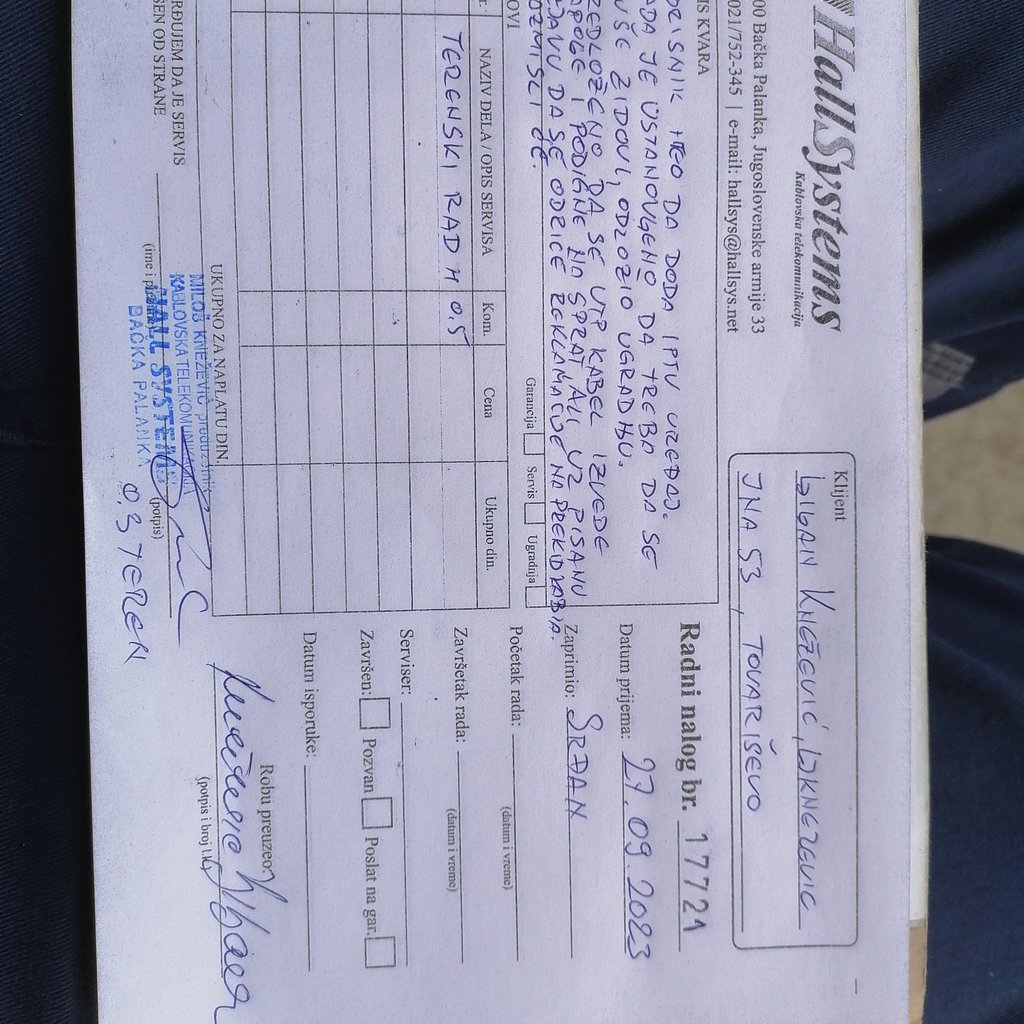 HallSystems
Kablovska telekomunikacija
00 Bačka Palanka, Jugoslovenske armije 33
021/752-345 | e-mail: hallsys@hallsys.net
Klijent
KNEŽEVIĆ,
JNA 53, TOVARIŠEVO
Radni nalog br. 17721
Datum prijema: 27.09.2023
Zaprimio: SRĐAN
Početak rada:
(datum i vreme)
Završetak rada:
(datum i vreme)
Serviser:
Završen: Pozvan Poslat na gar.
Datum isporuke:
Robu preuzeo:
(potpis i broj l.k.)
IS KVARA
ORISNIK HTEO DA DODA IPTV UREĐAJ.
ADA JE USTANOVLJENO DA TREBA DA SE
UŠE ZIDOVI, ODLOŽIO UGRADNJU.
REDLOŽENO DA SE UTP KABEL IZVEDE
APOLJE I PODIGNE NA SPRAT ALI UZ PISANU
JAVU DA SE ODRIČE REKLAMACIJE NA PREKID KABLA.
OZMISLIĆE.
Garancija Servis Ugradnja
OVI
r. NAZIV DELA / OPIS SERVISA Kom. Cena Ukupno din.
TERENSKI RAD H 0.5
UKUPNO ZA NAPLATU DIN.
RĐUJEM DA JE SERVIS
ŠEN OD STRANE
(potpis)
MILOŠ KNEŽEVIĆ preduzetnik
KABLOVSKA TELEKOMUNIKACIJA
HALL SYSTEMS
BAČKA PALANKA
0.3 TEREN